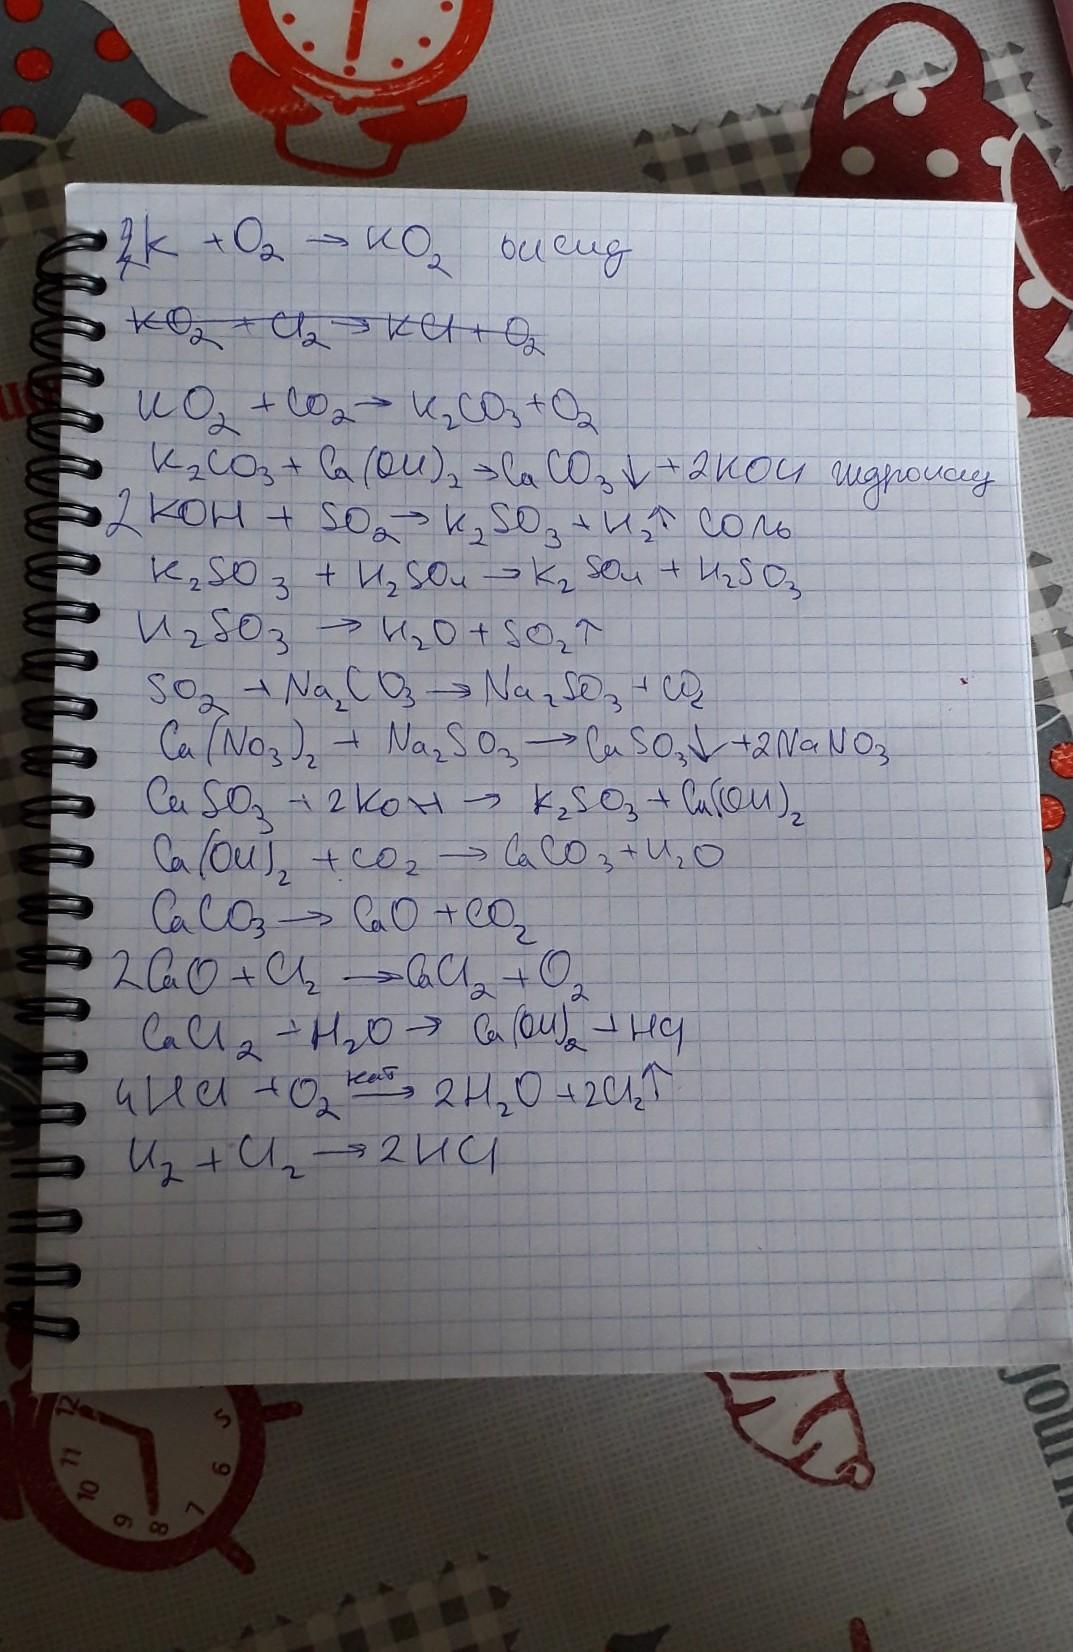 K + O₂ → KO₂ оксид
KO₂ + Cl₂ → KCl + O₂
KO₂ + CO₂ → K₂CO₃ + O₂
K₂CO₃ + Ca(OH)₂ → CaCO₃↓ + 2KOH гидроксид
2KOH + SO₂ → K₂SO₃ + H₂↑ соль
K₂SO₃ + H₂SO₄ → K₂SO₄ + H₂SO₃
H₂SO₃ → H₂O + SO₂↑
SO₂ + Na₂CO₃ → Na₂SO₃ + CO₂
Ca(NO₃)₂ + Na₂SO₃ → CaSO₃↓ + 2NaNO₃
CaSO₃ + 2KOH → K₂SO₃ + Ca(OH)₂
Ca(OH)₂ + CO₂ → CaCO₃ + H₂O
CaCO₃ → CaO + CO₂
2CaO + Cl₂ → CaCl₂ + O₂
CaCl₂ + H₂O → Ca(OH)₂ + HCl
4HCl + O₂ кат → 2H₂O + 2Cl₂↑
H₂ + Cl₂ → 2HCl
12
11
10
9
8
7
6
5
journ